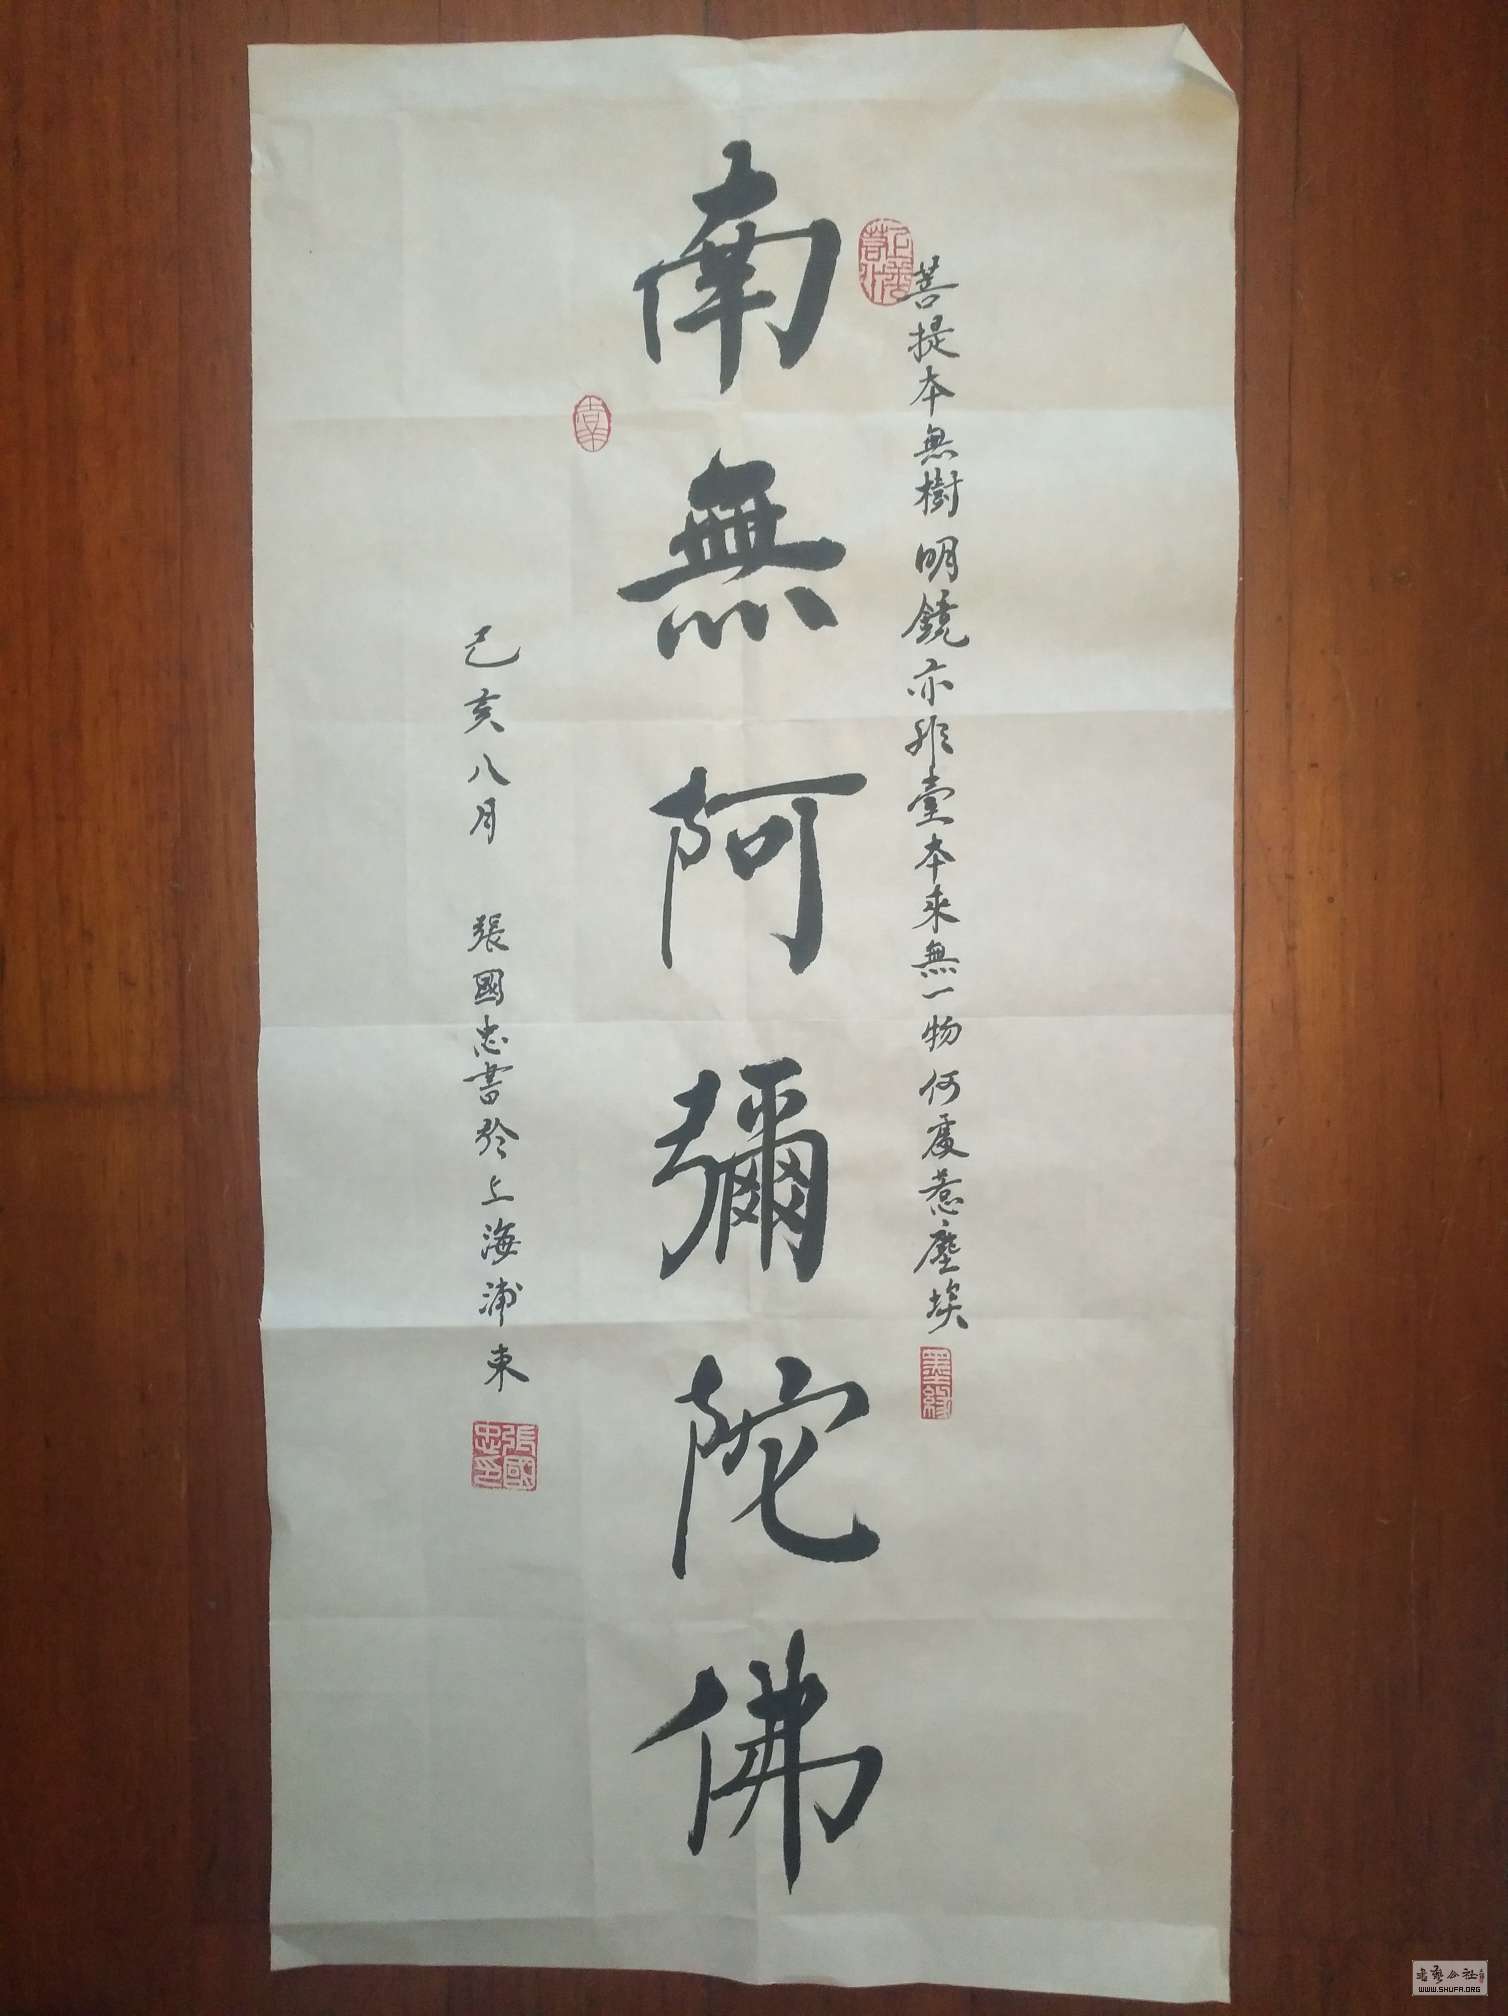 菩提本無樹明鏡亦非臺本來無一物何處惹塵埃
墨缘
南無阿彌陀佛
己亥八月 張國忠書於上海浦東
張國忠印
書藝公社
WWW.SHUFA.ORG